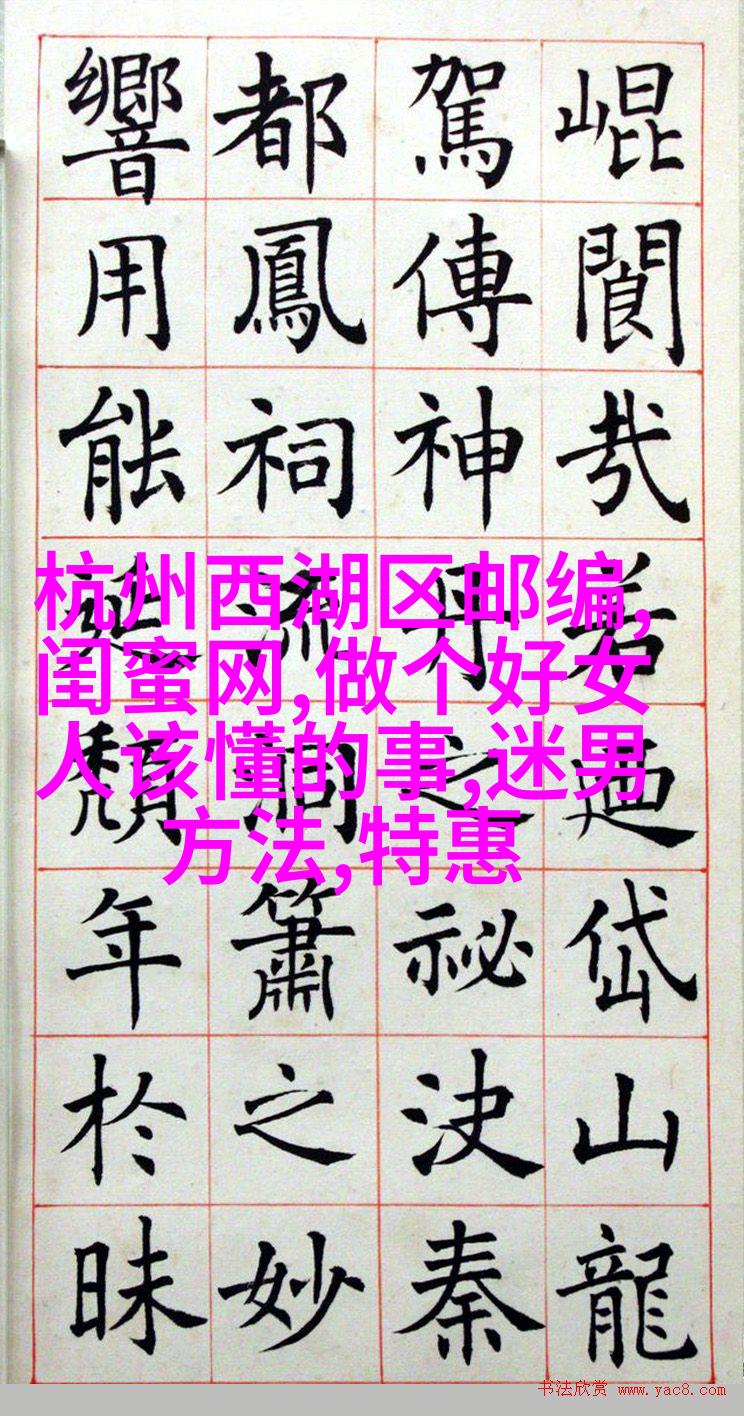 崐閬若廼岱山龍
駕傳神丹之祕決秦
都鳳祠流洞簫之妙
響用能延頹年於昧
杭州西湖区邮编,
闺蜜网,做个好女
人该懂的事,迷男
方法,特惠
书法欣赏 www.yac8.com